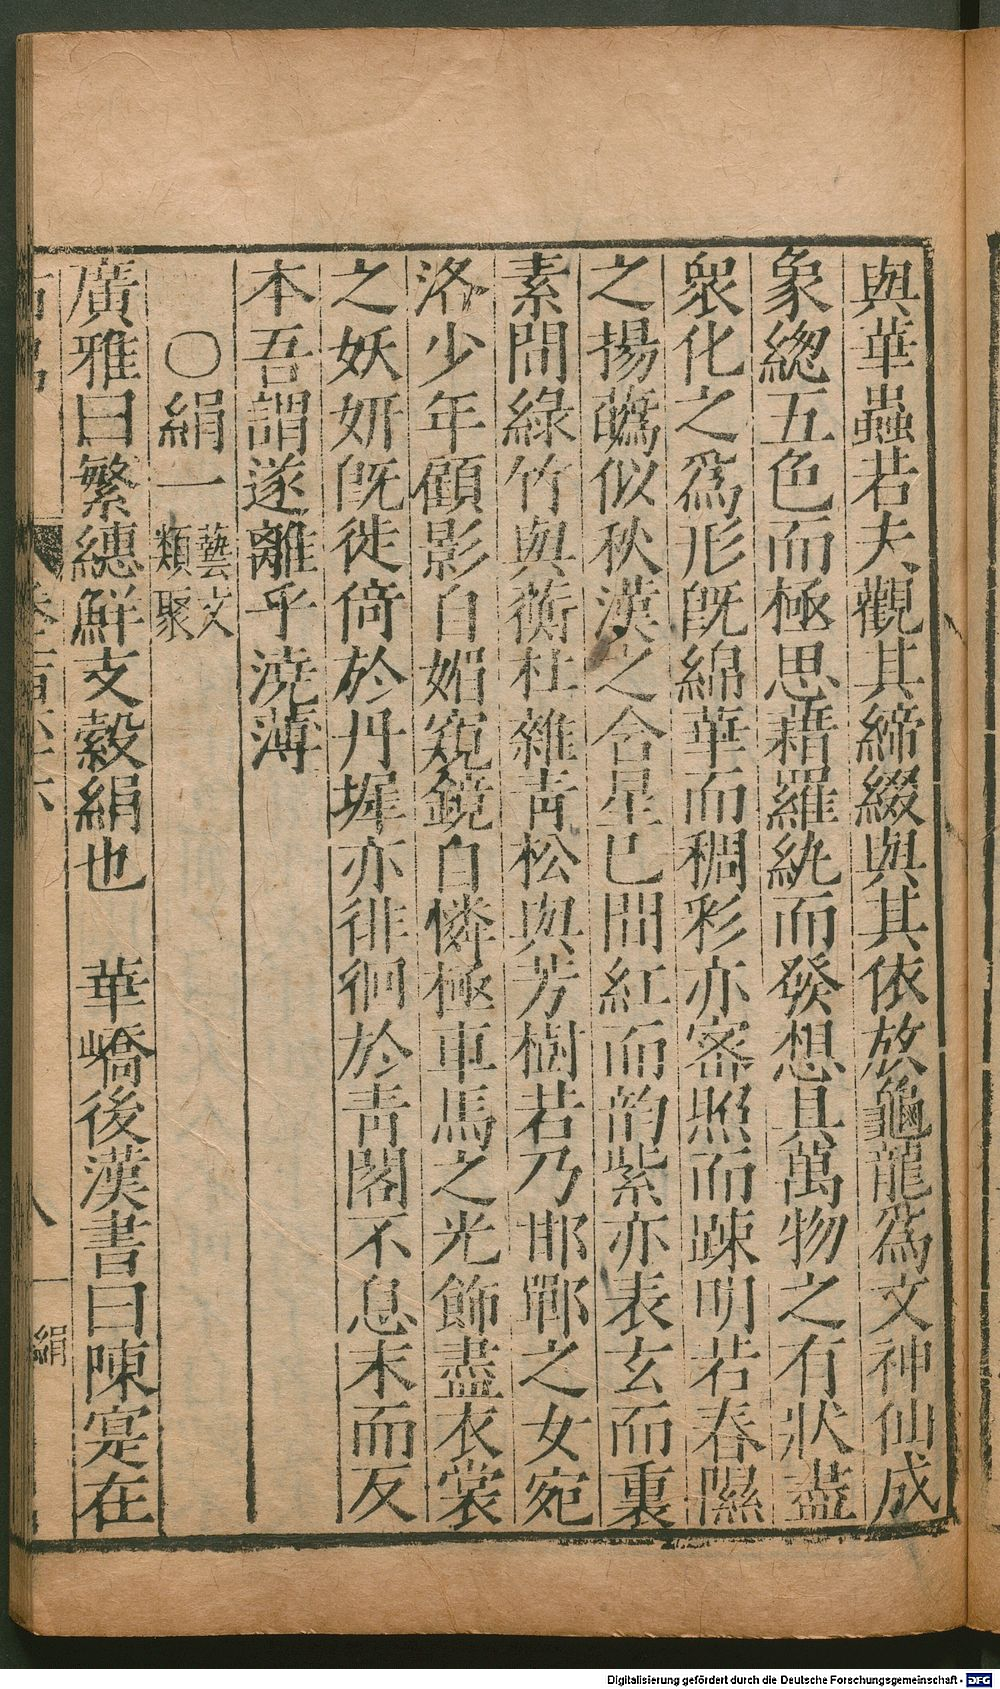 與華蟲若夫觀其締綴與其依放龜龍爲文神仙成
象緫五色而極思藉羅紈而發想且萬物之有狀盡
衆化之爲形旣綿華而稠彩亦密照而疎明若春隰
之揚蘤似秋漢之含星已間紅而韵紫亦表玄而裏
素間綠竹與蘅杜雜青松與芳樹若乃邯鄲之女宛
洛少年顧影自媚窺鏡自憐極車馬之光飾盡衣裳
之妖妍旣徙倚於丹墀亦徘徊於青閣不息末而反
本吾謂遂離乎澆薄
〇絹一 藝文類聚
廣雅曰繁繐鮮支縠絹也 華嶠後漢書曰陳寔在
卷二百六十六 八 絹
Digitalisierung gefördert durch die Deutsche Forschungsgemeinschaft - DFG